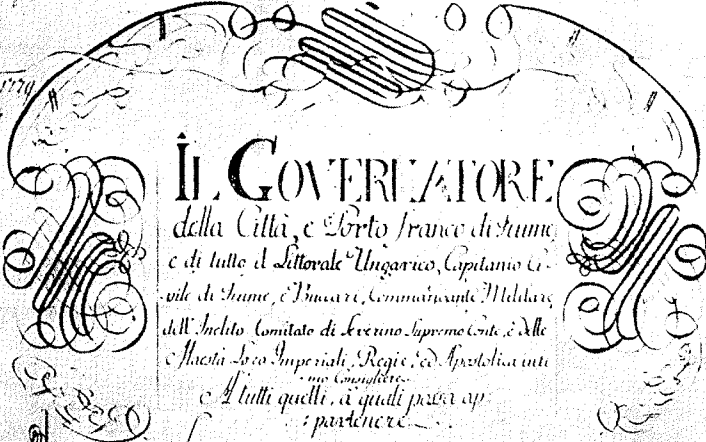 1779
IL GOVERNATORE
della Città, e Porto franco di Fiume,
e di tutto il Littorale Ungarico, Capitanio Ci-
vile di Fiume, e Buccari, Commandante Militare,
dell'Inclito Comitato di Severino Supremo Conte, e delle
Maestà Loro Imperiali, Regie, ed Apostolica inti
mo Consigliere
A tutti quelli, a quali possa ap:
:partenere